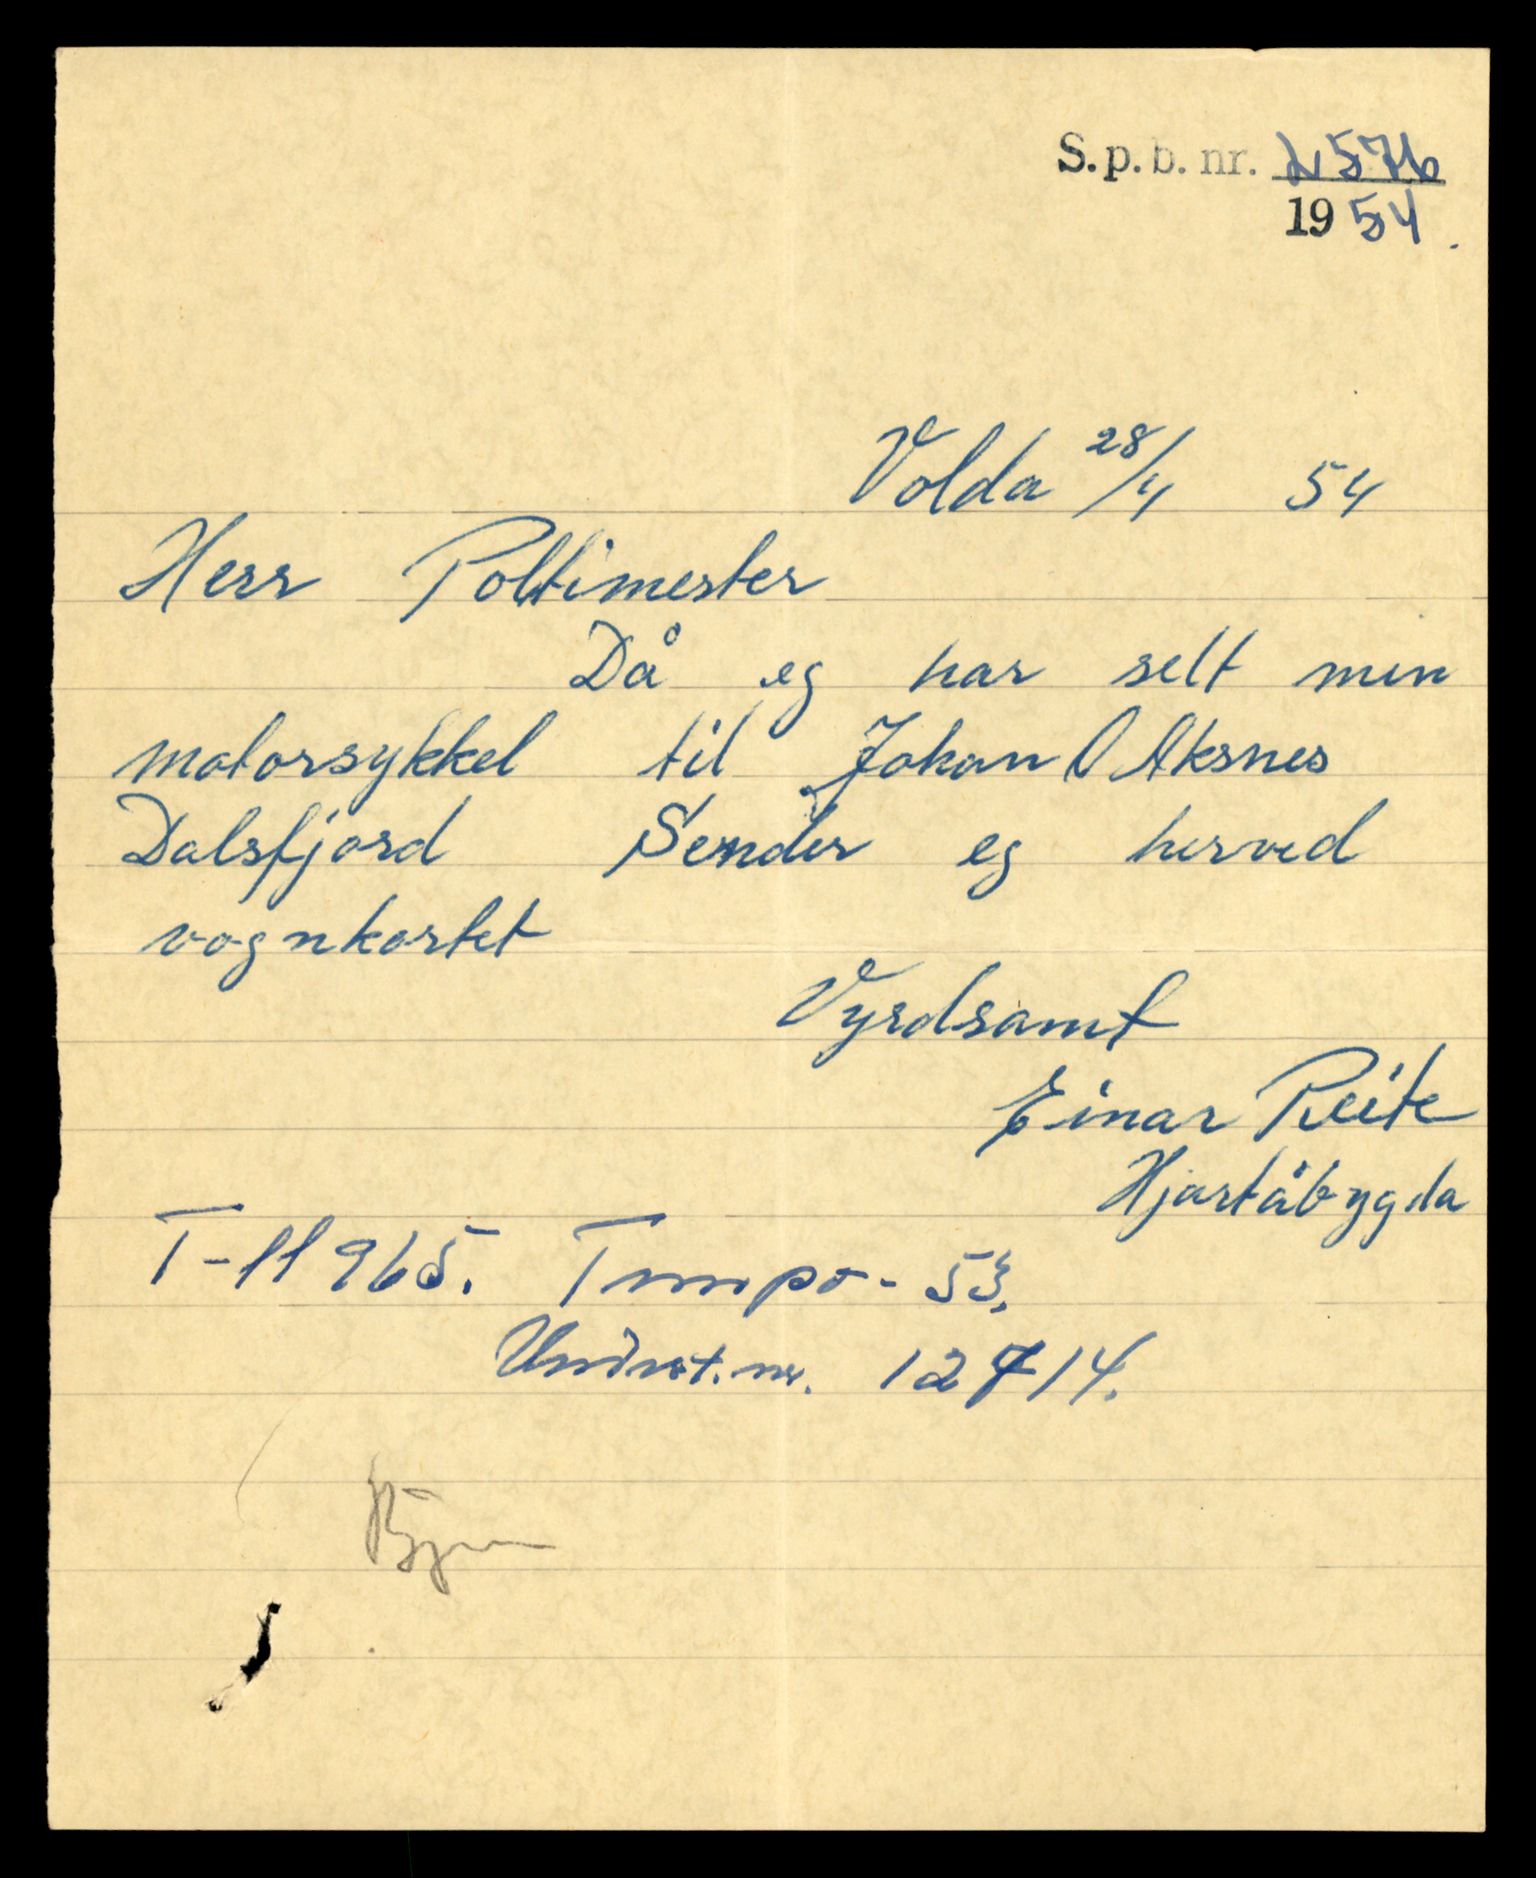 S.p.b. nr. 2576
1954.
Volda 28/4 54
Herr Politimester
Då eg har selt min
motorsykkel til Johan O Aksnes
Dalsfjord Sender eg herved
vognkortet
Vyrdsamt
Einar Reite
Hjartåbygda
T-11965. Tempo - 53.
Underst.nr. 12714.